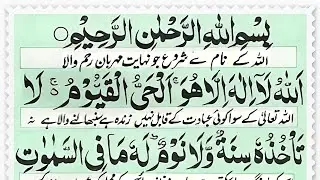 بِسْمِ اللهِ الرَّحْمٰنِ الرَّحِيْمِ
اللہ کے نام سے شروع جو نہایت مہربان رحم والا
اَللهُ لَاۤ اِلٰهَ اِلَّا هُوَ ۚ اَلْحَیُّ الْقَیُّوْمُ ۚ لَا
اللہ تعالیٰ کے سوا کوئی عبادت کے قابل نہیں زندہ ہے سنبھالنے والا ہے نہ
تَاْخُذُهٗ سِنَةٌ وَّلَا نَوْمٌ ؕ لَهٗ مَا فِی السَّمٰوٰتِ